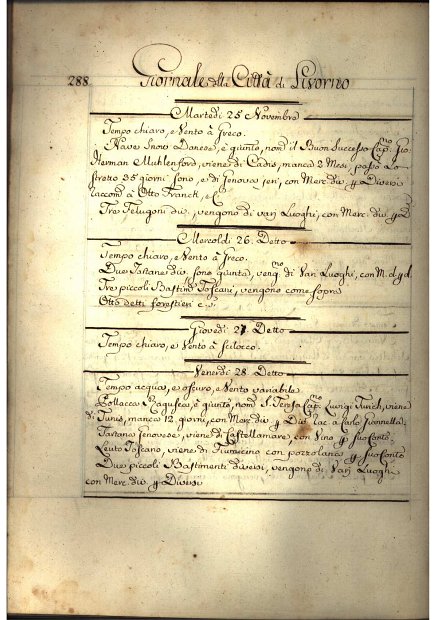 288
Giornale della Città di Livorno
Martedì 25 Novembre
Tempo chiaro, e Vento à Greco.
Nave Snow Danese, è giunto, nom. il Buon Successo Cap.no Gio.
Herman Muhlenford, viene di Cadis, manca 2 Mesi, passò lo
stretto 35 giorni sono, e di Genova jeri, con Merc. div. p Diversi
raccom. à Otto Franck, e C.
Tre Felugoni div., vengono di varj Luoghi, con Merc. div. p D.
Mercoldi 26. Detto
Tempo chiaro, e Vento à Greco.
Due Tartane div. sono giunte, veng.no di Varj Luoghi, con M. d. p d.
Tre piccoli Bastim. Toscani, vengono come sopra
Otto detti forestieri
Giovedì 27 Detto
Tempo chiaro, e Vento à Scilocco.
Venerdì 28. Detto
Tempo acqua, e oscuro, e Vento variabile
Pollacca Ragusea, è giunta, nom. S. Teresa Cap.no Luigi, viene
di Tunis, manca 12. giorni, con Merc. div. p Div. rac. a Carlo Giannella
Tartana Genovese, viene di Castellamare, con Vino p suo Conto
Leuto Toscano, viene di Fiumicino con pozzolana p suo Conto
Due piccoli Bastimenti diversi, vengono di Varj Luoghi
con Merc. div. p Diversi